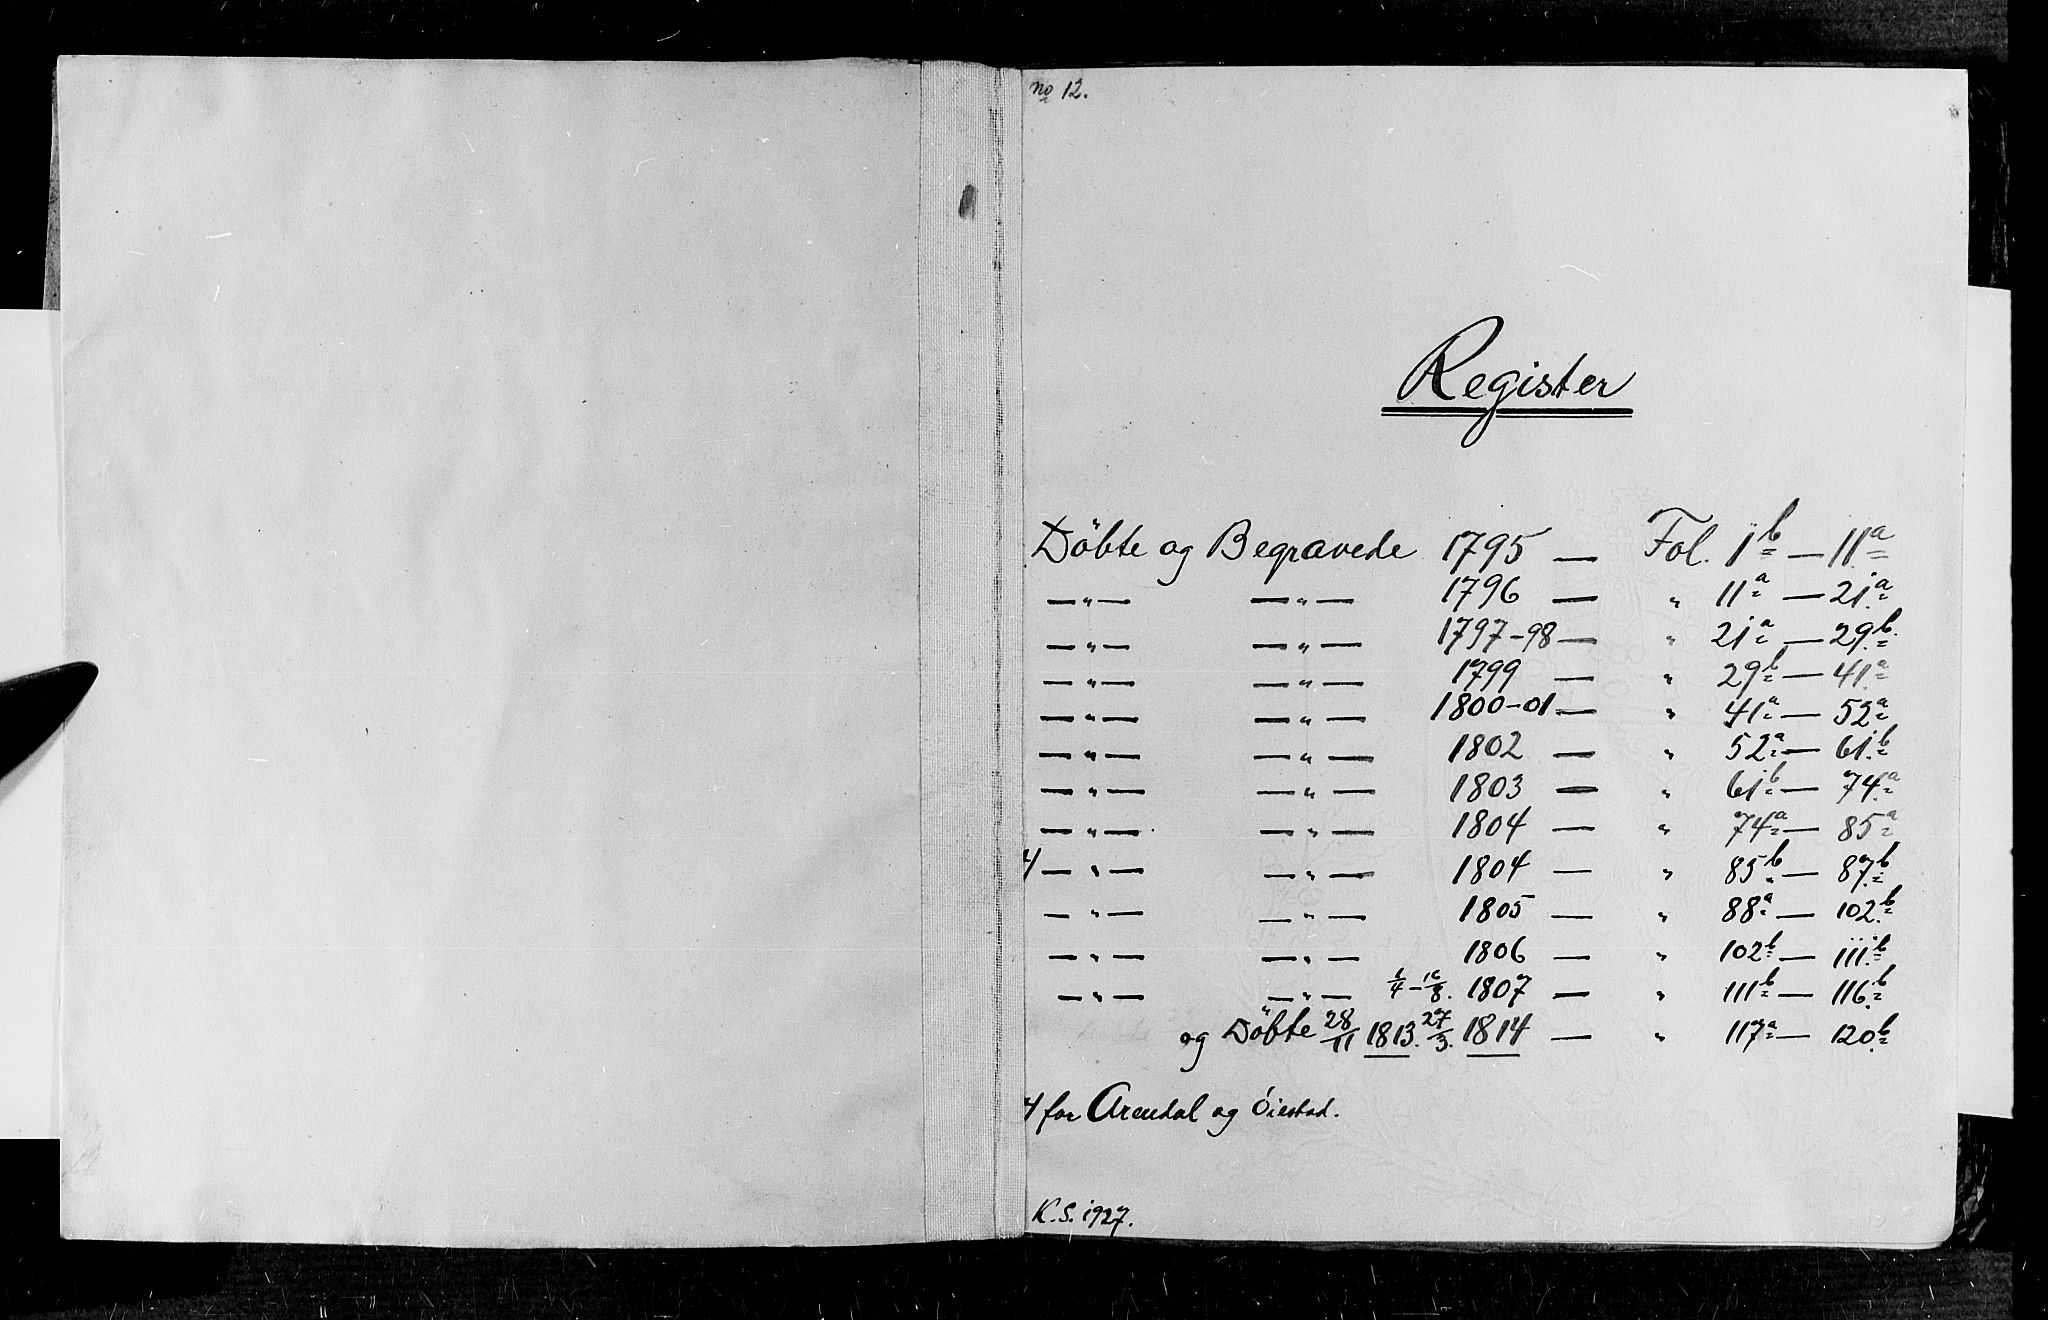 no 12.
Register
Döbte og Begravede 1795 — Fol. 1b — 11a
— " — — " — 1796 — " 11a — 21a
— " — — " — 1797-98 — " 21a — 29b
— " — — " — 1799 — " 29b — 41a
— " — — " — 1800-01 — " 41a — 52a
— " — — " — 1802 — " 52a — 61b
— " — — " — 1803 — " 61b — 74a
— " — — " — 1804 — " 74a — 85a
— " — — " — 1804 — " 85b — 87b
— " — — " — 1805 — " 88a — 102b
— " — — " — 1806 — " 102b — 111b
— " — — " — 1807 — " 111b — 116b
og Döbte 28/11 1813. 27/3. 1814 — " 117a — 120b
for Arendal og Öiestad.
K.S. 1927.